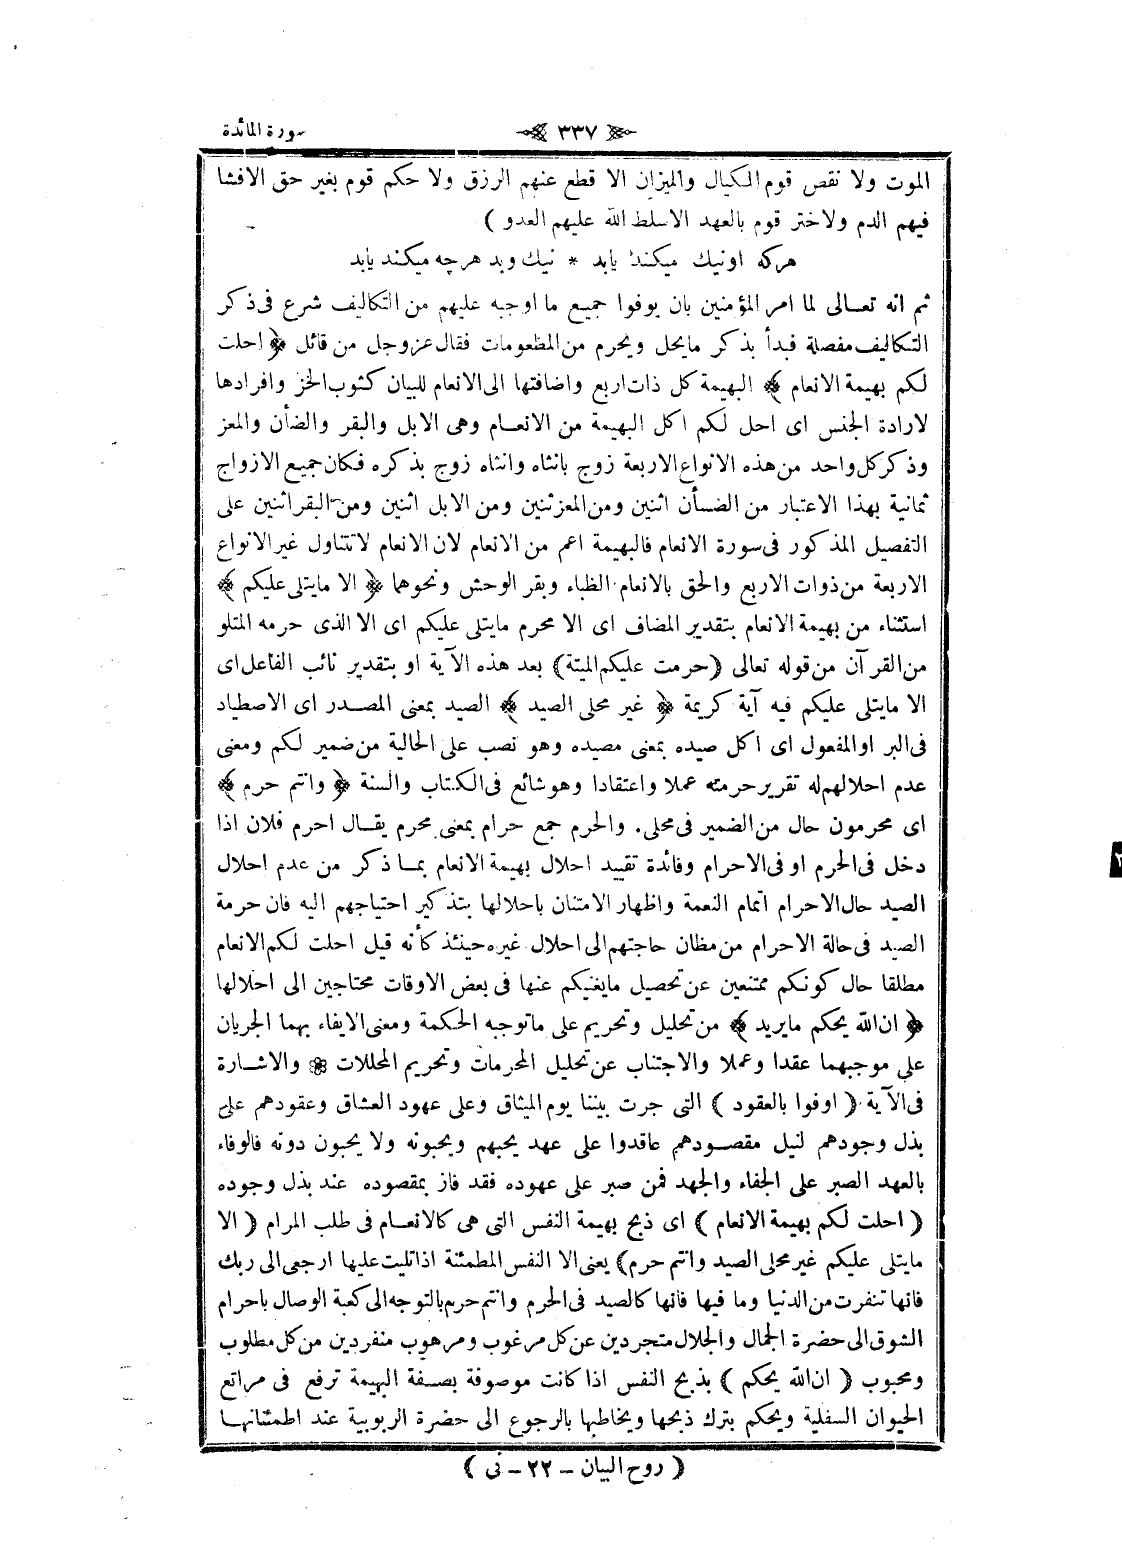 سورة المائدة ٣٣٧
الموت ولا نقص قوم المكيال والميزان الا قطع عنهم الرزق ولا حكم قوم بغير حق الافشا
فيهم الدم ولاختر قوم بالعهد الاسلط الله عليهم العدو )
هركه اونيك ميكند يابد * نيك وبد هرچه ميكند يابد
ثم انه تعالى لما امر المؤمنين بان يوفوا جميع ما اوجبه عليهم من التكاليف شرع فى ذكر
التكاليف مفصلة فبدأ بذكر مايحل ويحرم من المطعومات فقال عزوجل من قائل ﴿ احلت
لكم بهيمة الانعام ﴾ البهيمة كل ذات اربع واضافتها الى الانعام للبيان كثوب الخز وافرادها
لارادة الجنس اى احل لكم اكل البهيمة من الانعام وهى الابل والبقر والضأن والمعز
وذكر كل واحد من هذه الانواع الاربعة زوج بانثاه وانثاه زوج بذكره فكان جميع الازواج
ثمانية بهذا الاعتبار من الضأن اثنين ومن المعز اثنين ومن الابل اثنين ومن البقر اثنين على
التفصيل المذكور فى سورة الانعام فالبهيمة اعم من الانعام لان الانعام لاتتناول غير الانواع
الاربعة من ذوات الاربع والحق بالانعام الظباء وبقر الوحش ونحوهما ﴿ الا مايتلى عليكم ﴾
استثناء من بهيمة الانعام بتقدير المضاف اى الا محرم مايتلى عليكم اى الا الذى حرمه المتلو
من القرآن من قوله تعالى (حرمت عليكم الميتة) بعد هذه الآية او بتقدير نائب الفاعل اى
الا مايتلى عليكم فيه آية كريمة ﴿ غير محلى الصيد ﴾ الصيد بمعنى المصدر اى الاصطياد
فى البر او المفعول اى اكل صيده بمعنى مصيده وهو نصب على الحالية من ضمير لكم ومعنى
عدم احلالهم له تقرير حرمته عملا واعتقادا وهو شائع فى الكتاب والسنة ﴿ وانتم حرم ﴾
اى محرمون حال من الضمير فى محلى. والحرم جمع حرام بمعنى محرم يقال احرم فلان اذا
دخل فى الحرم او فى الاحرام وفائدة تقييد احلال بهيمة الانعام بما ذكر من عدم احلال
الصيد حال الاحرام اتمام النعمة واظهار الامتنان باحلالها بتذكير احتياجهم اليه فان حرمة
الصيد فى حالة الاحرام من مظان حاجتهم الى احلال غيره حينئذ كأنه قيل احلت لكم الانعام
مطلقا حال كونكم ممتنعين عن تحصيل مايغنيكم عنها فى بعض الاوقات محتاجين الى احلالها
﴿ ان الله يحكم مايريد ﴾ من تحليل وتحريم على ماتوجبه الحكمة ومعنى الايفاء بهما الجريان
على موجبهما عقدا وعملا والاجتناب عن تحليل المحرمات وتحريم المحللات ❁ والاشارة
فى الآية ( اوفوا بالعقود ) التى جرت بيننا يوم الميثاق وعلى عهود العشاق وعقودهم على
بذل وجودهم لنيل مقصودهم عاقدوا على عهد يحبهم ويحبونه ولا يحبون دونه فالوفاء
بالعهد الصبر على الجفاء والجهد فمن صبر على عهوده فقد فاز بمقصوده عند بذل وجوده
( احلت لكم بهيمة الانعام ) اى ذبح بهيمة النفس التى هى كالانعام فى طلب المرام ( الا
مايتلى عليكم غير محلى الصيد وانتم حرم) يعنى الا النفس المطمئنة اذا تليت عليها ارجعى الى ربك
فانها تنفرت من الدنيا وما فيها فانها كالصيد فى الحرم وانتم حرم بالتوجه الى كعبة الوصال باحرام
الشوق الى حضرة الجمال والجلال متجردين عن كل مرغوب ومرهوب منفردين من كل مطلوب
ومحبوب ( ان الله يحكم ) بذبح النفس اذا كانت موصوفة بصفة البهيمة ترفع فى مراتع
الحيوان السفلية ويحكم بترك ذبحها ويخاطبها بالرجوع الى حضرة الربوبية عند اطمئنانها
( روح البيان - ٢٢ - نى )